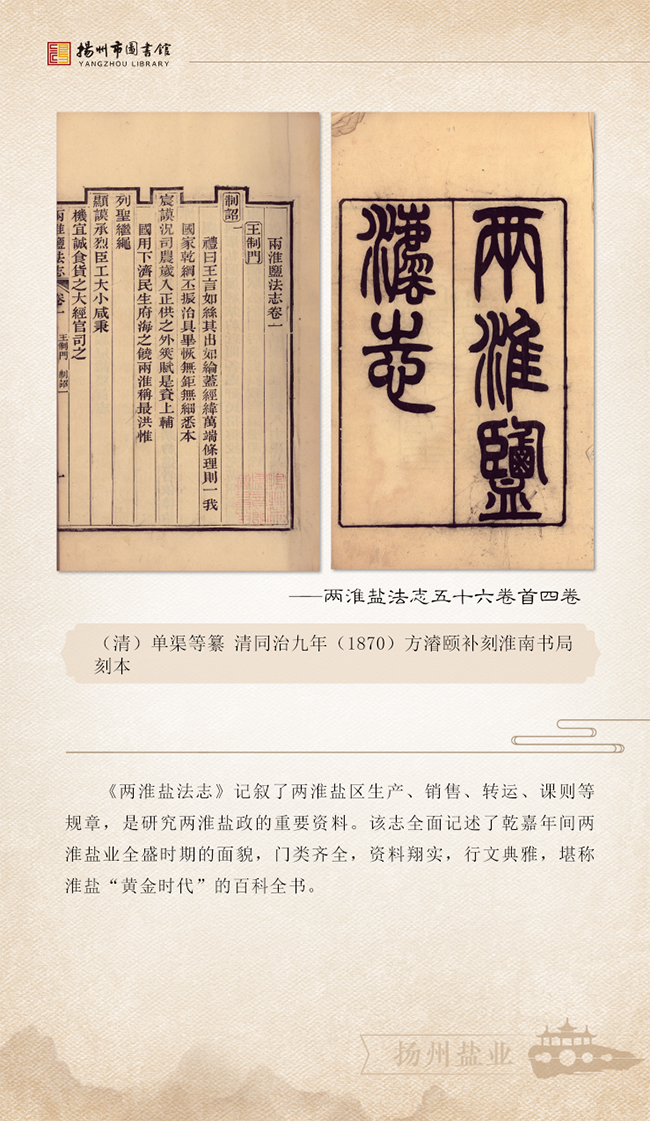 揚州市圖書館
YANGZHOU LIBRARY
兩淮鹽法志卷一
王制門
制詔一
禮曰王言如絲其出如綸蓋經緯萬端條理則一我
國家乾綱丕振治具畢恢無鉅無細悉本
宸謨況司農歲入正供之外筴賦是資上輔
國用下濟民生府海之饒兩淮稱最洪惟
列聖繼繩
顯謨承烈臣工大小咸秉
機宜誠食貨之大經官司之
兩淮鹽法志 卷一 王制門 制詔一
兩淮鹽
灋志
——两淮盐法志五十六卷首四卷
（清）单渠等纂 清同治九年（1870）方濬颐补刻淮南书局
刻本
《两淮盐法志》记叙了两淮盐区生产、销售、转运、课则等
规章，是研究两淮盐政的重要资料。该志全面记述了乾嘉年间两
淮盐业全盛时期的面貌，门类齐全，资料翔实，行文典雅，堪称
淮盐“黄金时代”的百科全书。
扬州盐业